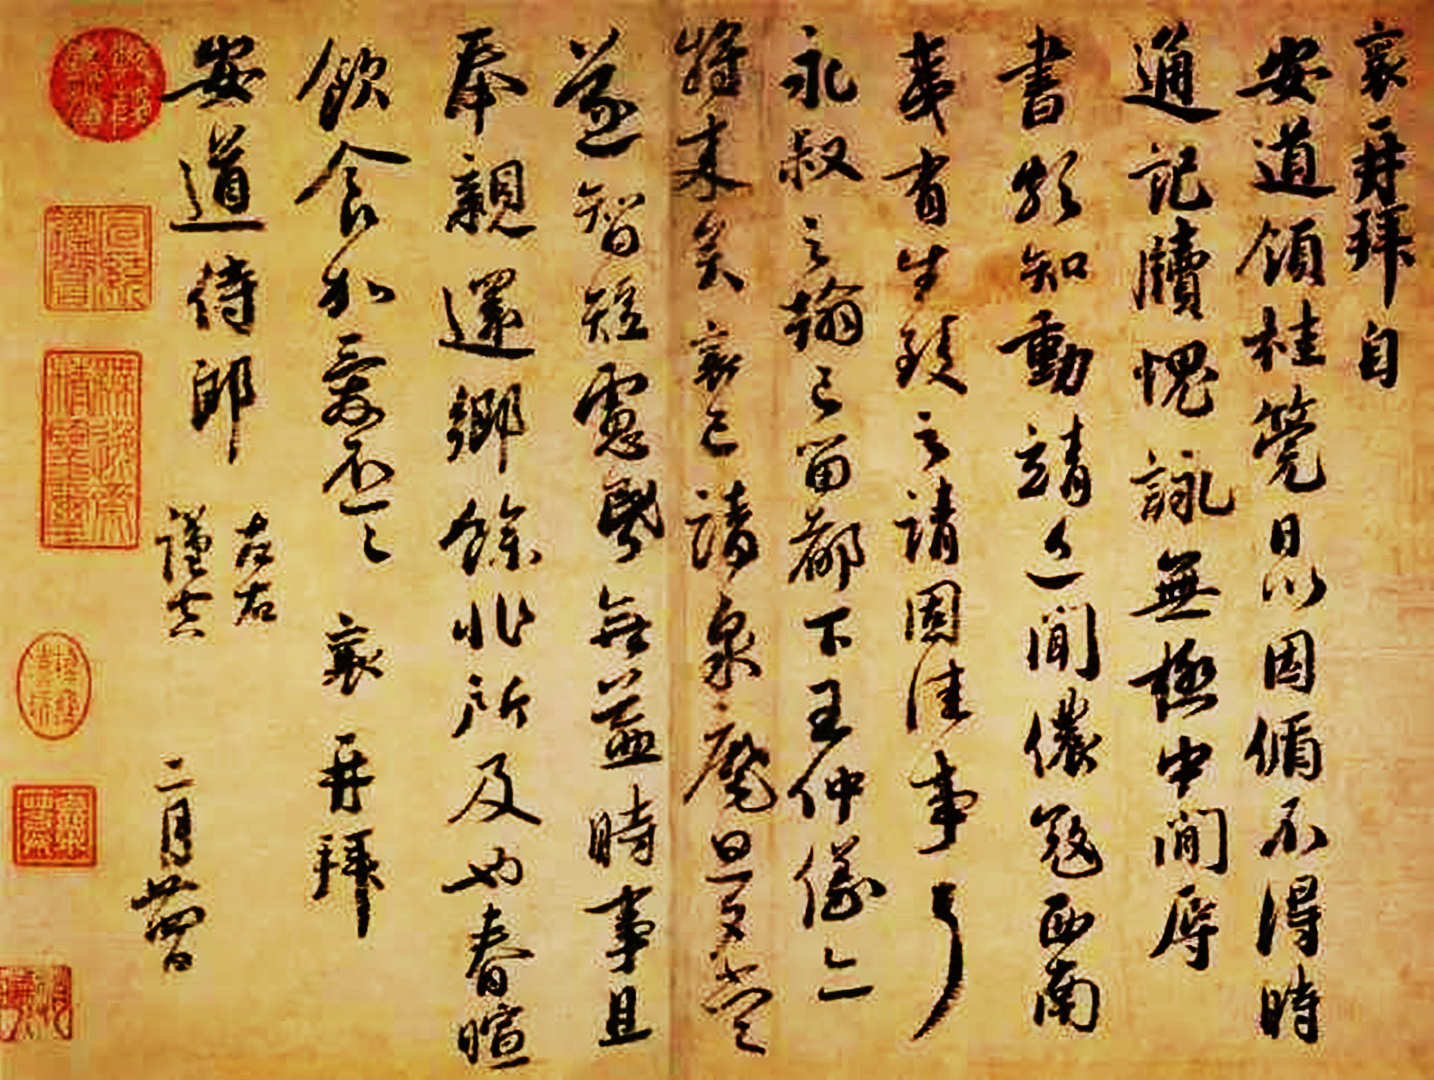 襄再拜自
安道領桂筦日以因循不得時
通記牘愧詠無極中間辱
書頗知動靖近聞儂寇西南
夷有生致之請固佳事
永叔之翰已留都下王仲儀亦
將來矣襄已請泉麾旦夕當
遂智短慮昬無益時事且
奉親還鄉餘非所及也春暄
飲食加愛不一一 襄再拜
安道侍郎
左右
謹空
二月廿四日